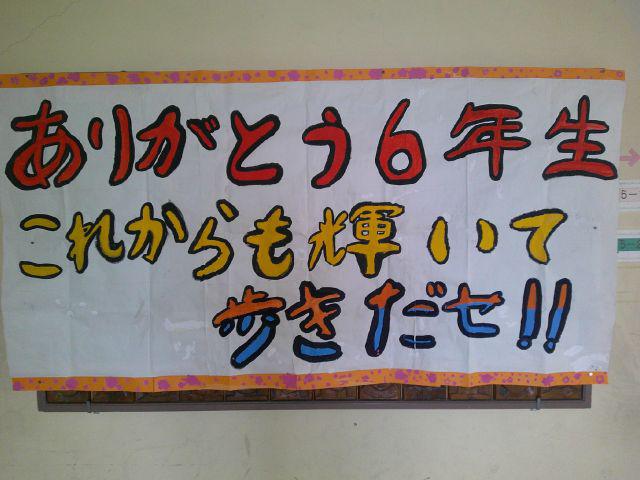 ありがとう6年生
これからも輝いて
歩きだせ!!
5-